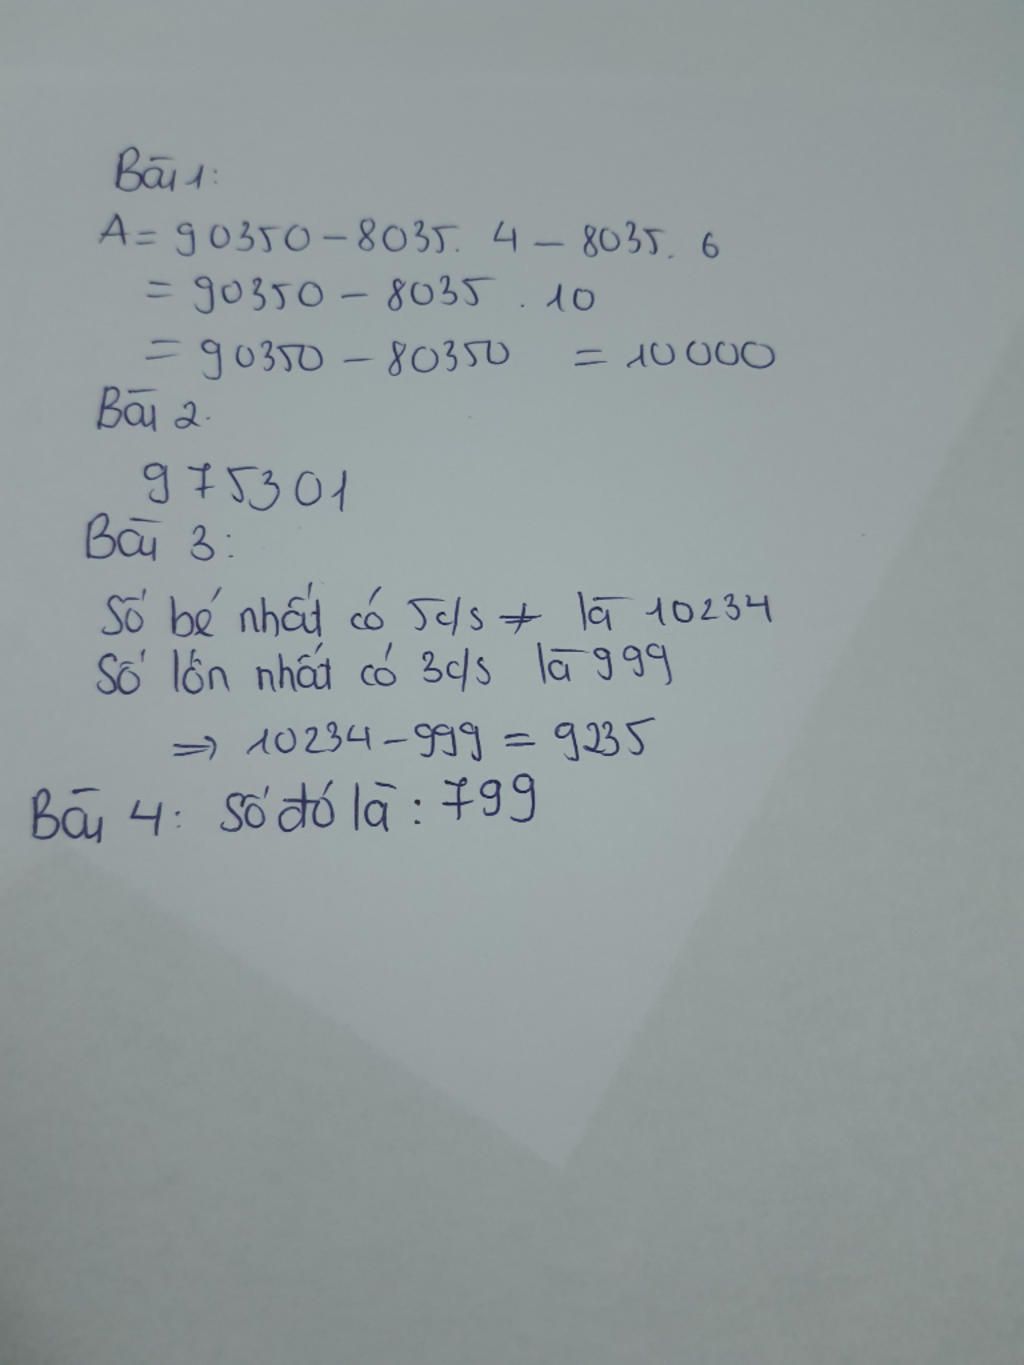 Bài 1:
A = 90350 - 8035. 4 - 8035. 6
= 90350 - 8035 . 10
= 90350 - 80350 = 10000
Bài 2.
975301
Bài 3:
Số bé nhất có 5c/s ≠ là 10234
Số lớn nhất có 3c/s là 999
⇒ 10234 - 999 = 9235
Bài 4: Số đó là : 799